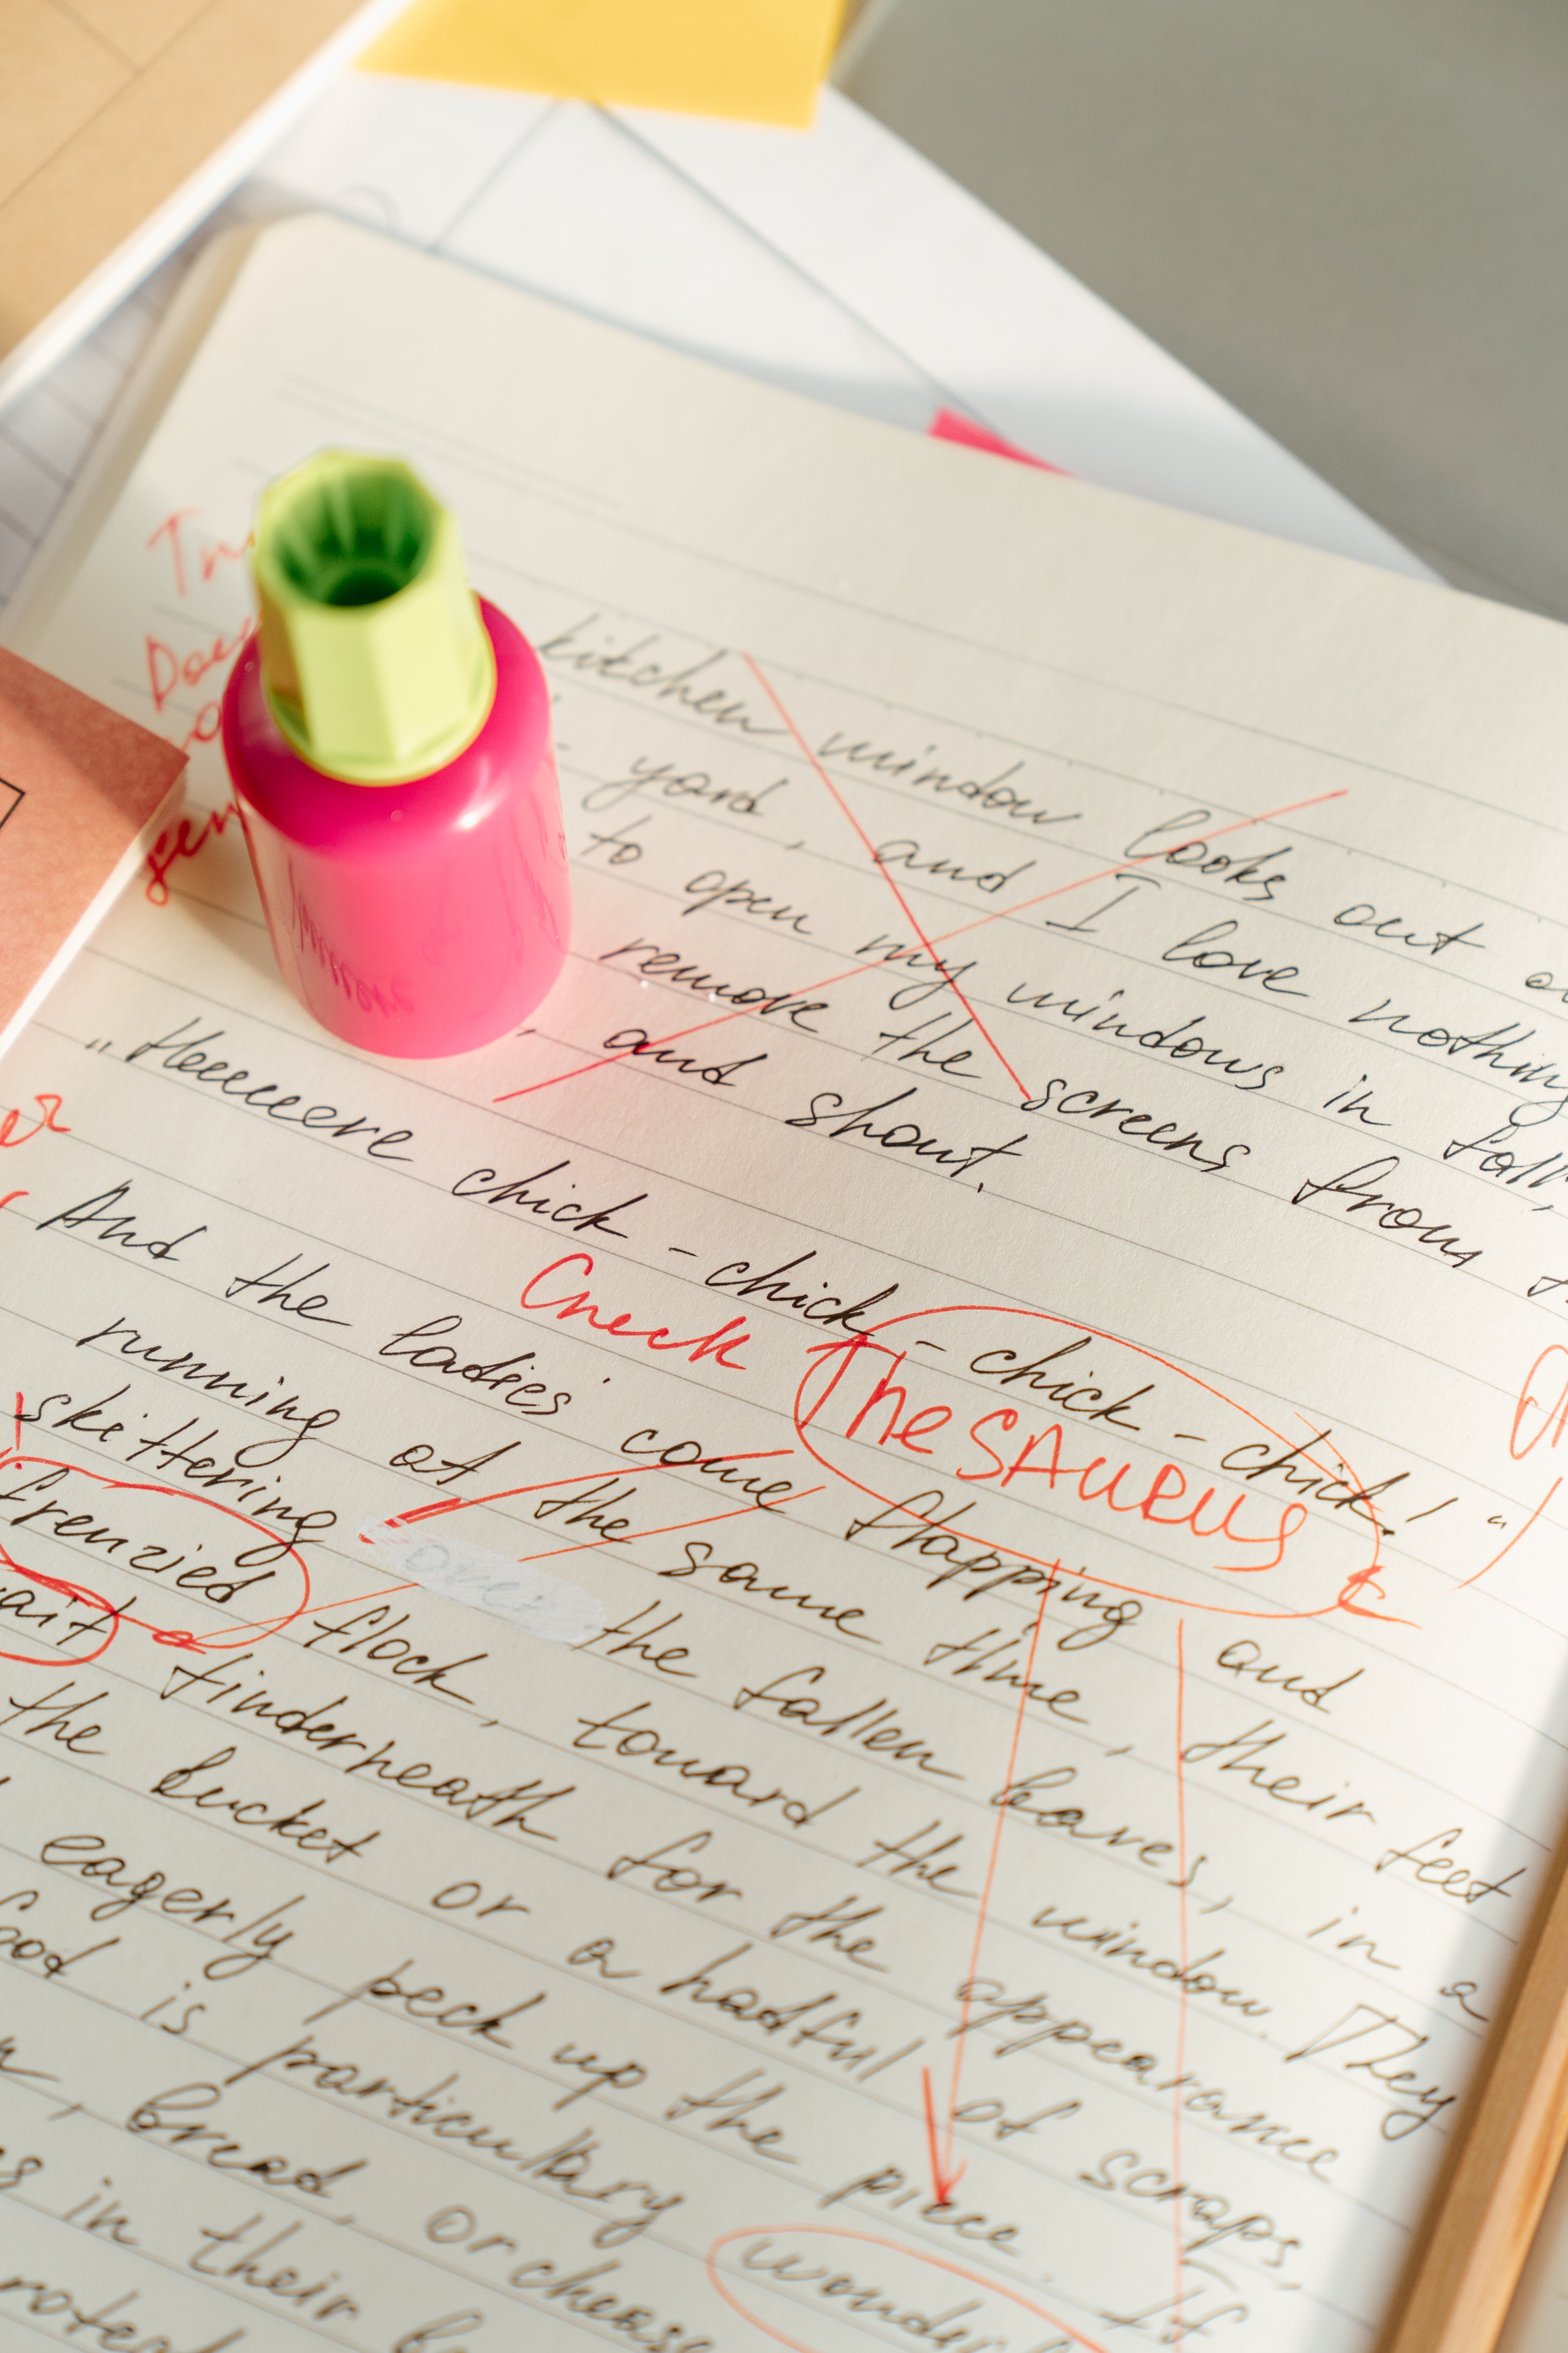 kitchen window looks out
yard, and I love nothing
to open my windows in fall,
remove the screens from
, and shout.
„Heeeeere chick - chick - chick - chick!“
Check THESAURUS
And the ladies come flapping and
running at the same time, their feet
skittering over the fallen leaves, in a
frenzied flock, toward the window. They
ait tinderneath for the appearance
the bucket or a hatful of scraps,
eagerly peck up the piece. If
food is particullary wonder
, bread, or cheese
in their